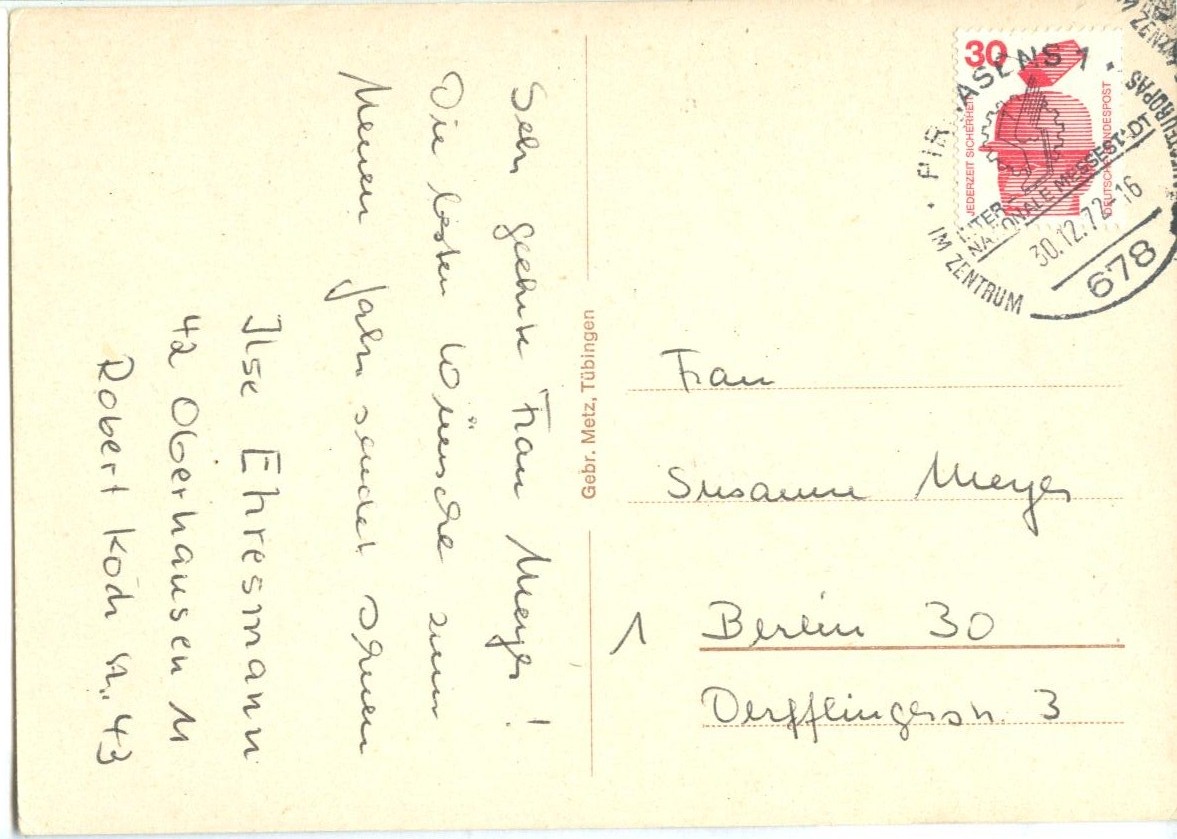 Sehr geehrte Frau Meyer!
Die besten Wünsche zum
Neuen Jahr sendet Ihnen
Ilse Ehresmann
42 Oberhausen 11
Robert Koch str. 43
Gebr. Metz, Tübingen
30
JEDERZEIT SICHERHEIT
DEUTSCHE BUNDESPOST
PIRMASENS 1
INTER-
NATIONALE MESSESTADT
30.12.72-16
IM ZENTRUM
678
Frau
Susanne Meyer
1 Berlin 30
Derfflingerstr. 3